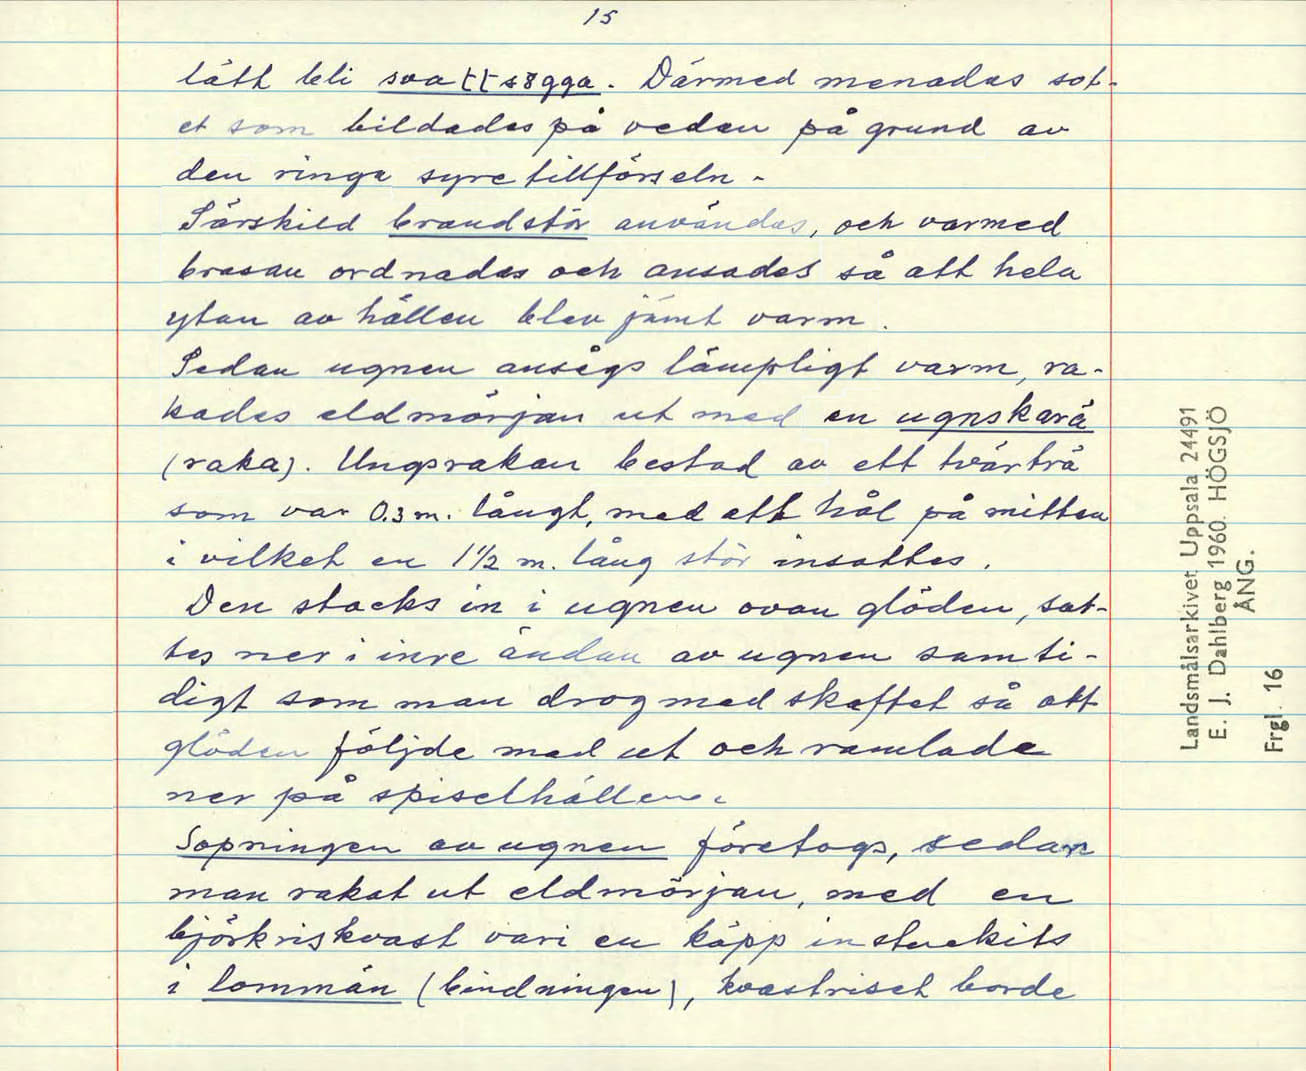 15
lätt bli svattsögga. Därmed menadas sot-
et som bildades på veden på grund av
den ringa syretillförseln.
Särskild brandstör användas, och varmed
brasan ordnades och ansades så att hela
ytan av hällen blev jämt varm.
Sedan ugnen ansågs lämpligt varm, ra-
kades eldmörjan ut med en ugnskarä
(raka). Ungsrakan bestod av ett tvärträ
som var 0.3 m. långt, med ett hål på mitten
i vilket en 1 1/2 m. lång stör insattes.
Den stacks in i ugnen ovan glöden, sat-
tes ner i inre ändan av ugnen samti-
digt som man drog med skaftet så att
glöden följde med ut och ramlade
ner på spiselhällen.
Sopningen av ugnen företogs, sedan
man rakat ut eldmörjan, med en
björkriskvast vari en käpp instuckits
i lommän (bindningen), kvastriset borde
Landsmålsarkivet Uppsala 24491
E. J. Dahlberg 1960. HÖGSJÖ
ÅNG.
Frgl. 16